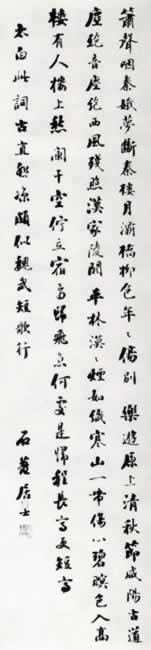 簫聲咽秦娥夢斷秦樓月灞橋柳色年〻傷別 樂遊原上清秋節咸陽古道
塵絕音塵絕西風殘照漢家陵闕 平林漠〻煙如織寒山一帶傷心碧暝色入高
樓有人樓上愁 闌干空佇立宿鳥歸飛急何處是歸程長亭更短亭
太白此詞古直悲涼頗似魏武短歌行
石居士